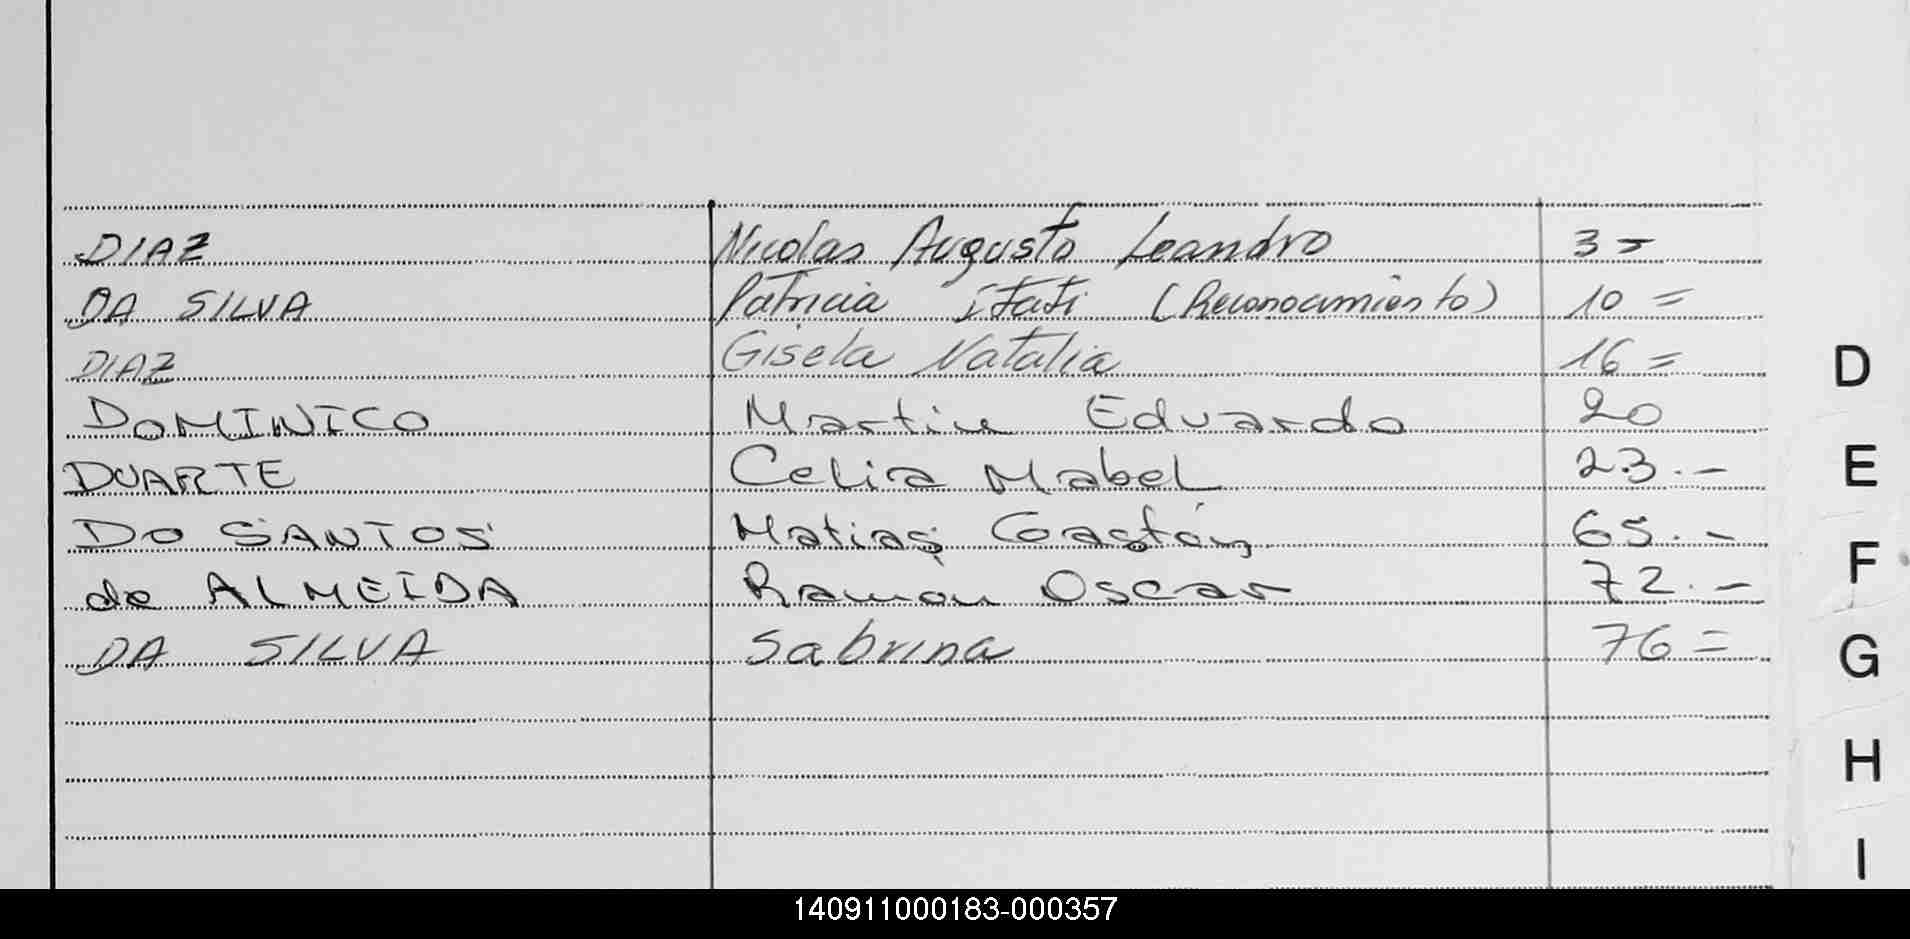 DIAZ Nicolas Augusto Leandro 3 =
DA SILVA Patricia Itati (Reconocimiento) 10 =
DIAZ Gisela Natalia 16 =
DOMINICO Martin Eduardo 20
DUARTE Celia Mabel 23.-
DO SANTOS Matias Gastón 65.-
de ALMEIDA Ramon Oscar 72.-
DA SILVA Sabrina 76 =
D
E
F
G
H
I
140911000183-000357